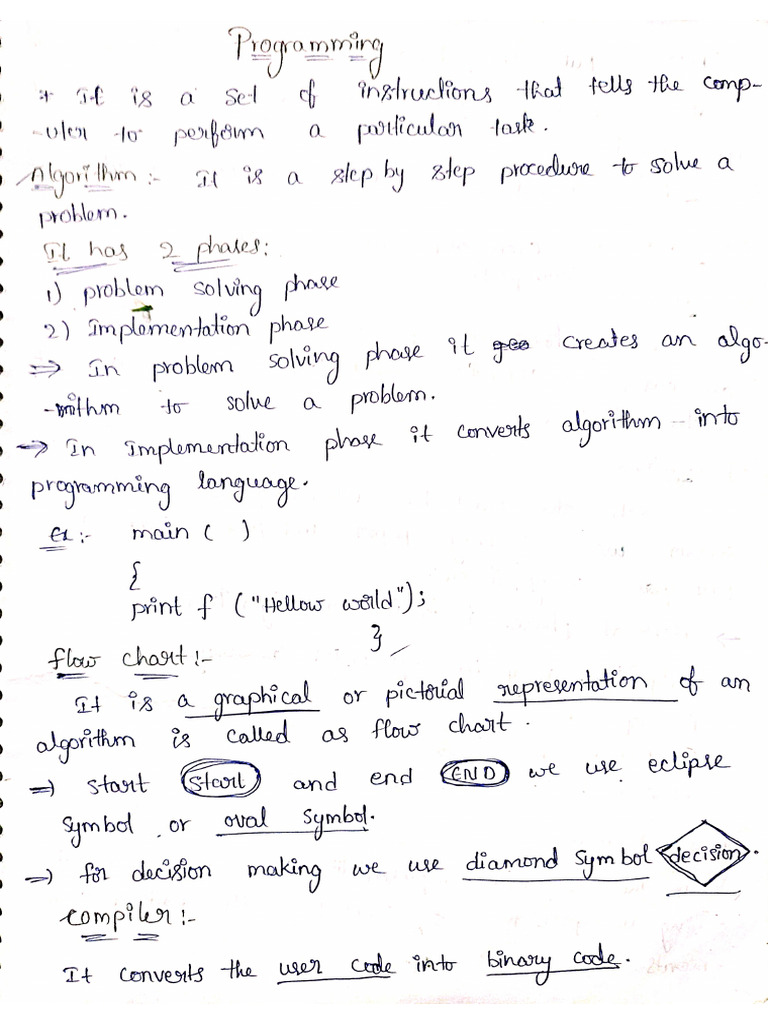 Programming
* It is a set of instructions that tells the comp-
-uter to perform a particular task.
Algorithm :- It is a step by step procedure to solve a
problem.
It has 2 phases:
1) problem solving phase
2) Implementation phase
⇒ In problem solving phase it creates an algo-
-rithm to solve a problem.
→ In Implementation phase it converts algorithm into
programming language.
Ex:- main ( )
{
print f ("Hellow world");
}
flow chart :-
It is a graphical or pictorial representation of an
algorithm is called as flow chart.
⇒ start (start) and end (END) we use eclipse
symbol or oval symbol.
⇒ for decision making we use diamond symbol decision.
compiler :-
It converts the user code into binary code.